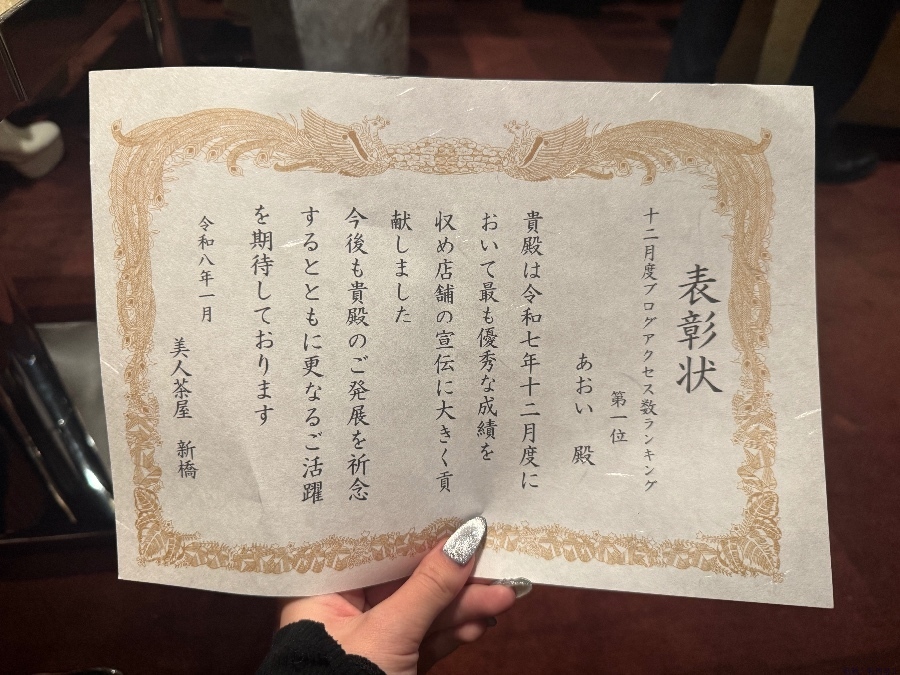 表彰状
十二月度ブログアクセス数ランキング
第一位
あおい 殿
貴殿は令和七年十二月度に
おいて最も優秀な成績を
収め店舗の宣伝に大きく貢
献しました
今後も貴殿のご発展を祈念
するとともに更なるご活躍
を期待しております
令和八年一月
美人茶屋 新橋